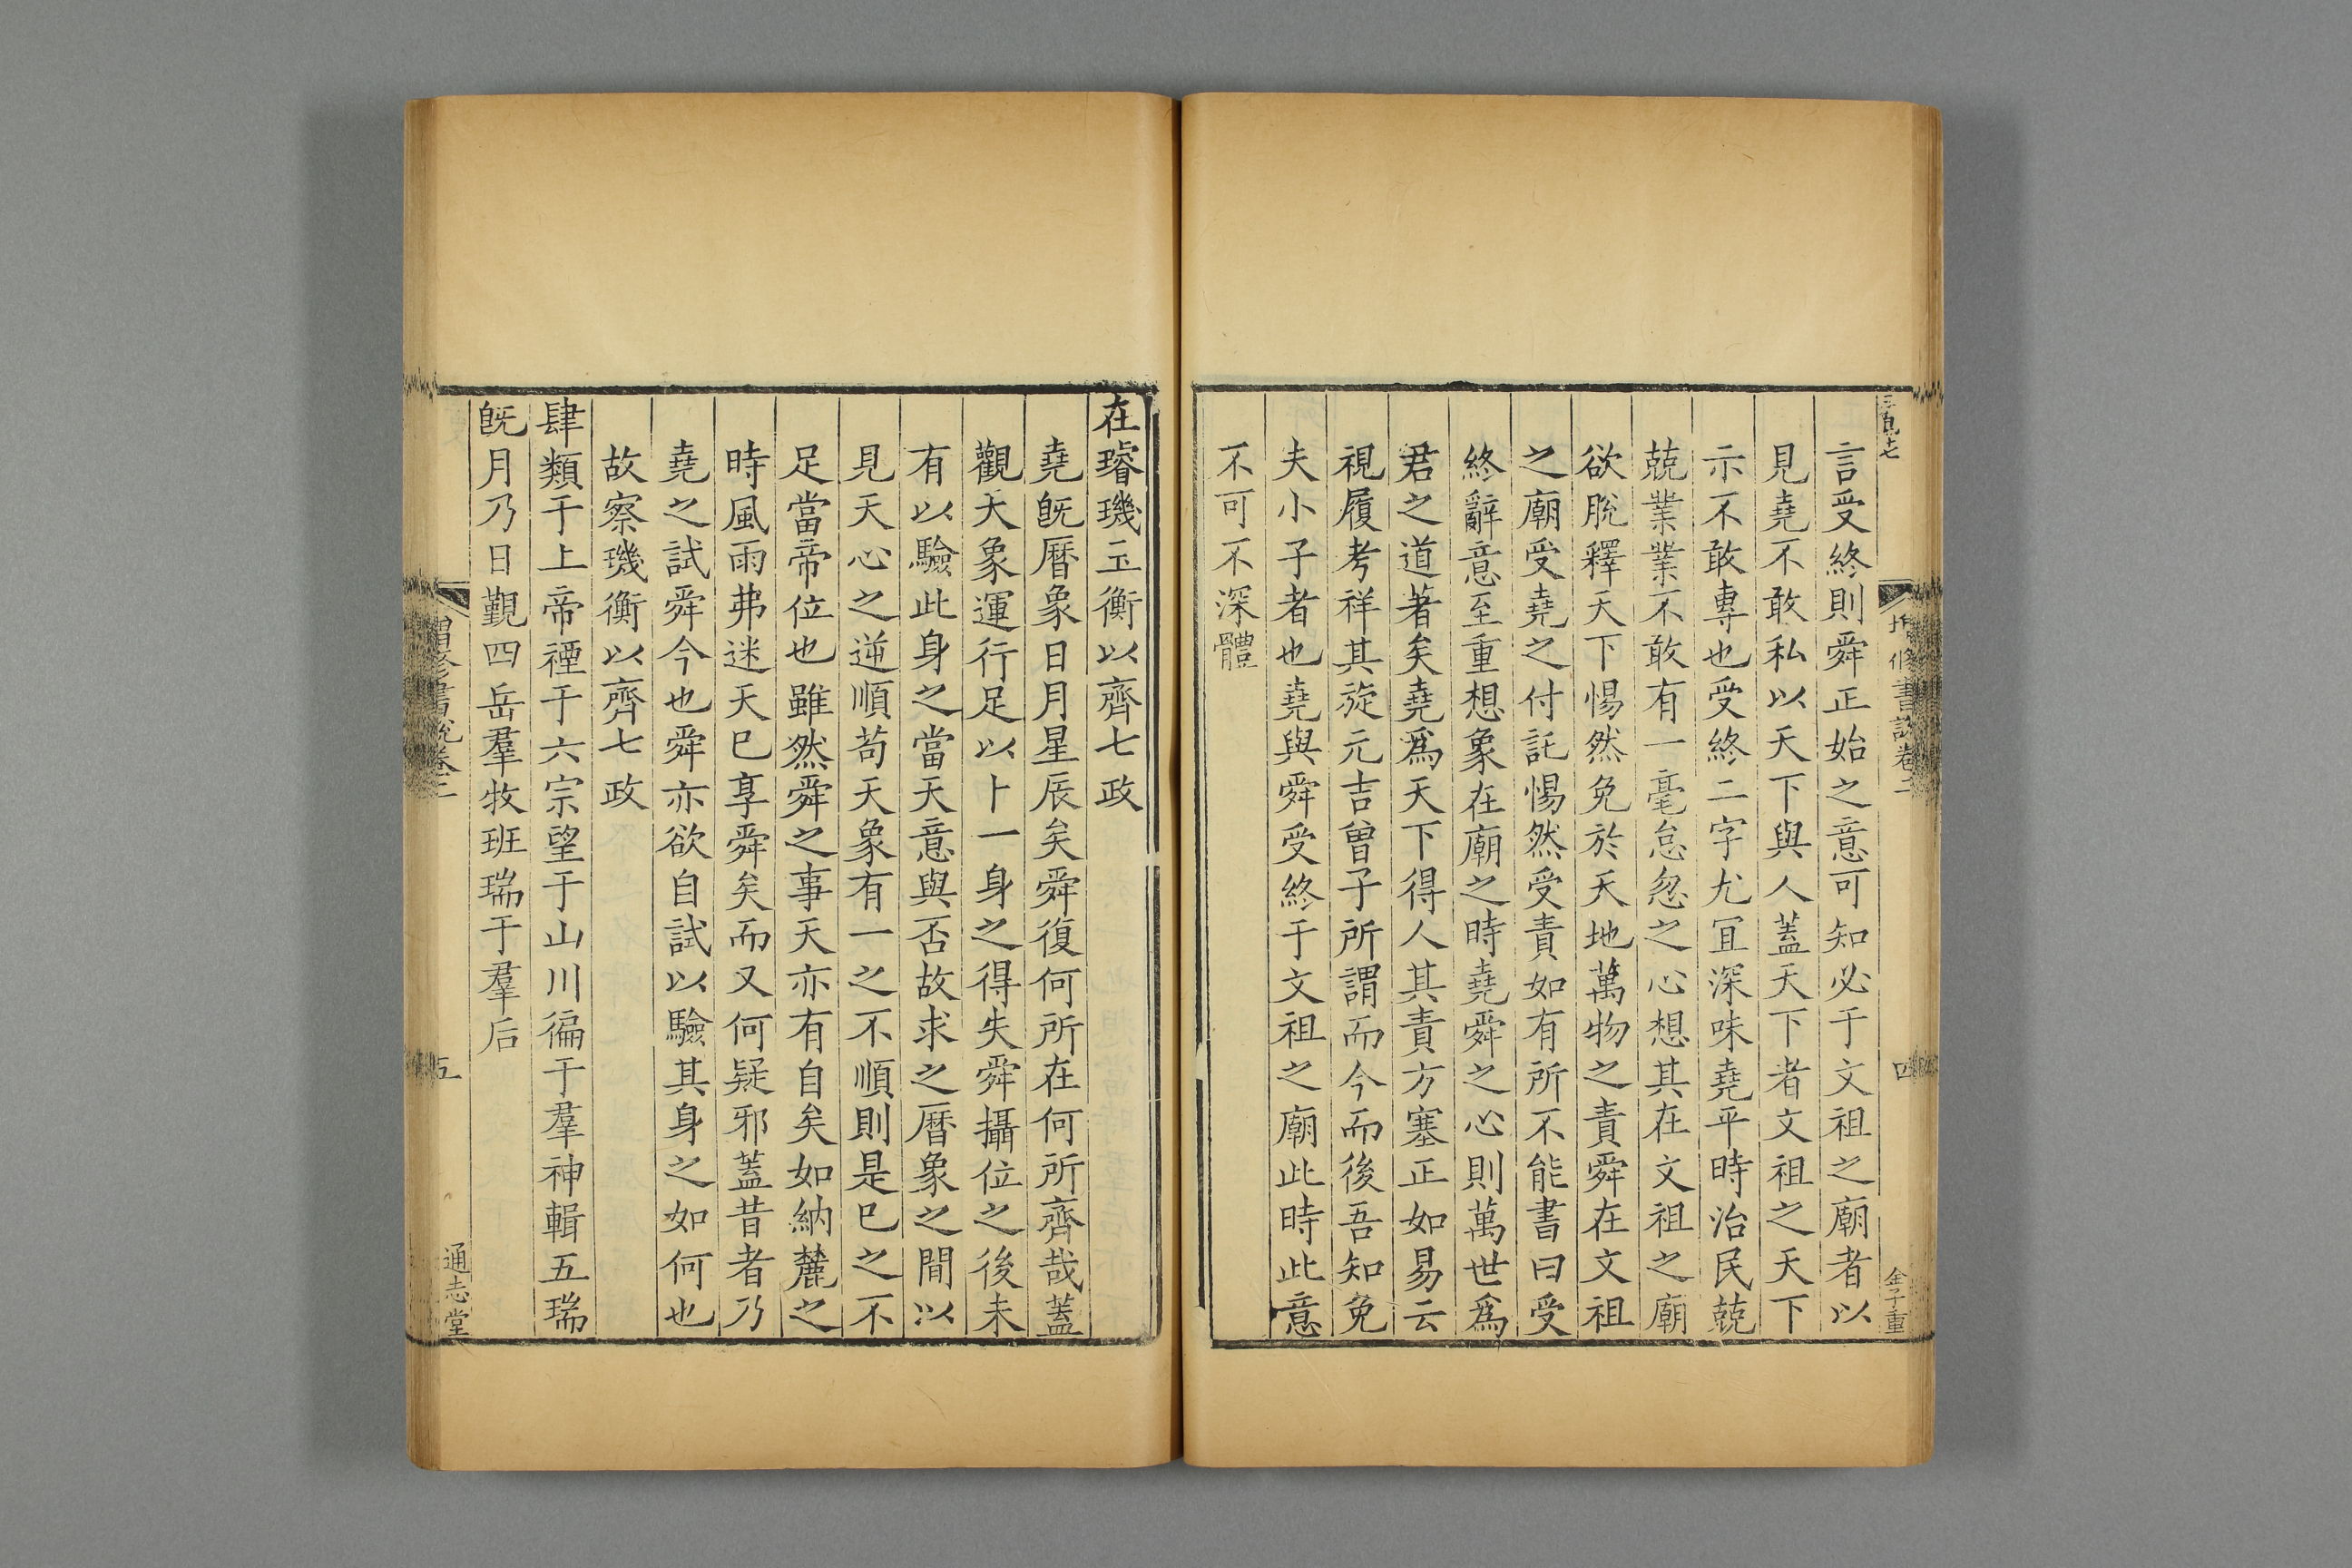 言受終則舜正始之意可知必于文祖之廟者以
見堯不敢私以天下與人蓋天下者文祖之天下
示不敢專也受終二字尤冝深味堯平時治民兢
兢業業不敢有一毫怠忽之心想其在文祖之廟
欲脫釋天下惕然免於天地萬物之責舜在文祖
之廟受堯之付託惕然受責如有所不能書曰受
終辭意至重想象在廟之時堯舜之心則萬世爲
君之道著矣堯爲天下得人其責方塞正如易云
視履考祥其旋元吉曾子所謂而今而後吾知免
夫小子者也堯與舜受終于文祖之廟此時此意
不可不深體
修書說卷二
四
金子重
在璿璣玉衡以齊七政
堯旣曆象日月星辰矣舜復何所在何所齊哉蓋
觀大象運行足以卜一身之得失舜攝位之後未
有以驗此身之當天意與否故求之曆象之間以
見天心之逆順苟天象有一之不順則是已之不
足當帝位也雖然舜之事天亦有自矣如納麓之
時風雨弗迷天已享舜矣而又何疑邪蓋昔者乃
堯之試舜今也舜亦欲自試以驗其身之如何也
故察璣衡以齊七政
肆類于上帝禋于六宗望于山川徧于羣神輯五瑞
旣月乃日覲四岳羣牧班瑞于羣后
增修書說卷二
五
通志堂